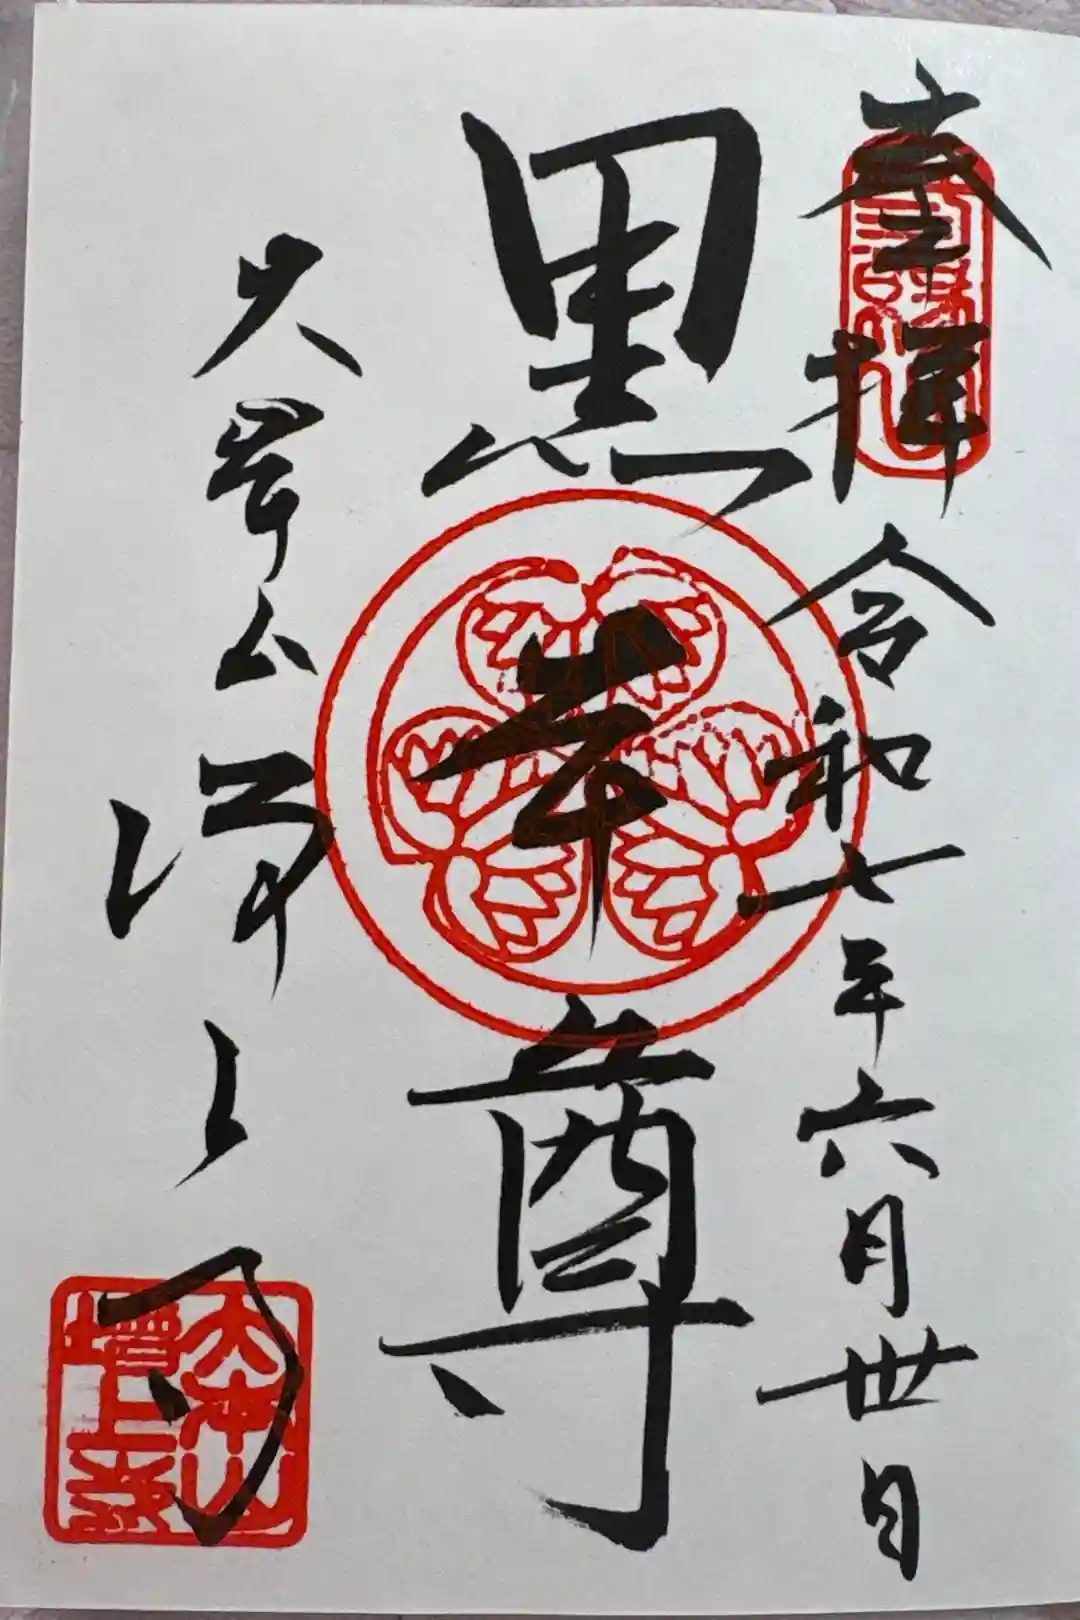 奉拝 令和七年六月卅日
黒本尊
大本山増上寺
大本山
増上寺